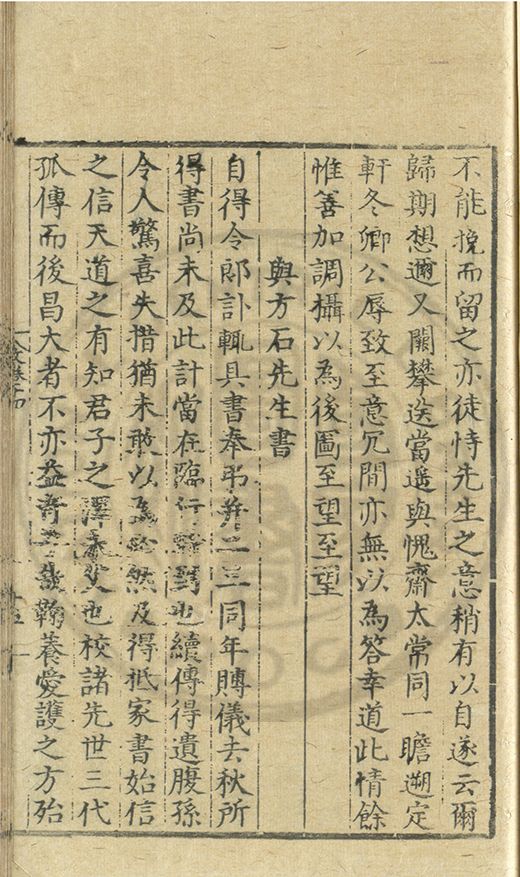 不能挽而留之亦徒恃先生之意稍有以自遂云爾
歸期想邇又闕攀送當遥與愧齋太常同一瞻遡定
軒冬卿公辱致至意冗間亦無以為答幸道此情餘
惟善加調攝以為後圖至望至望
與方石先生書
自得令郎訃輒具書奉弔并二三同年賻儀去秋所
得書尚未及此計當在臨行到也續傳得遺腹孫
令人驚喜失措猶未敢以為然及得抵家書始信
之信天道之有知君子之澤也校諸先世三代
孤傳而後昌大者不亦益奇翰養愛護之方殆